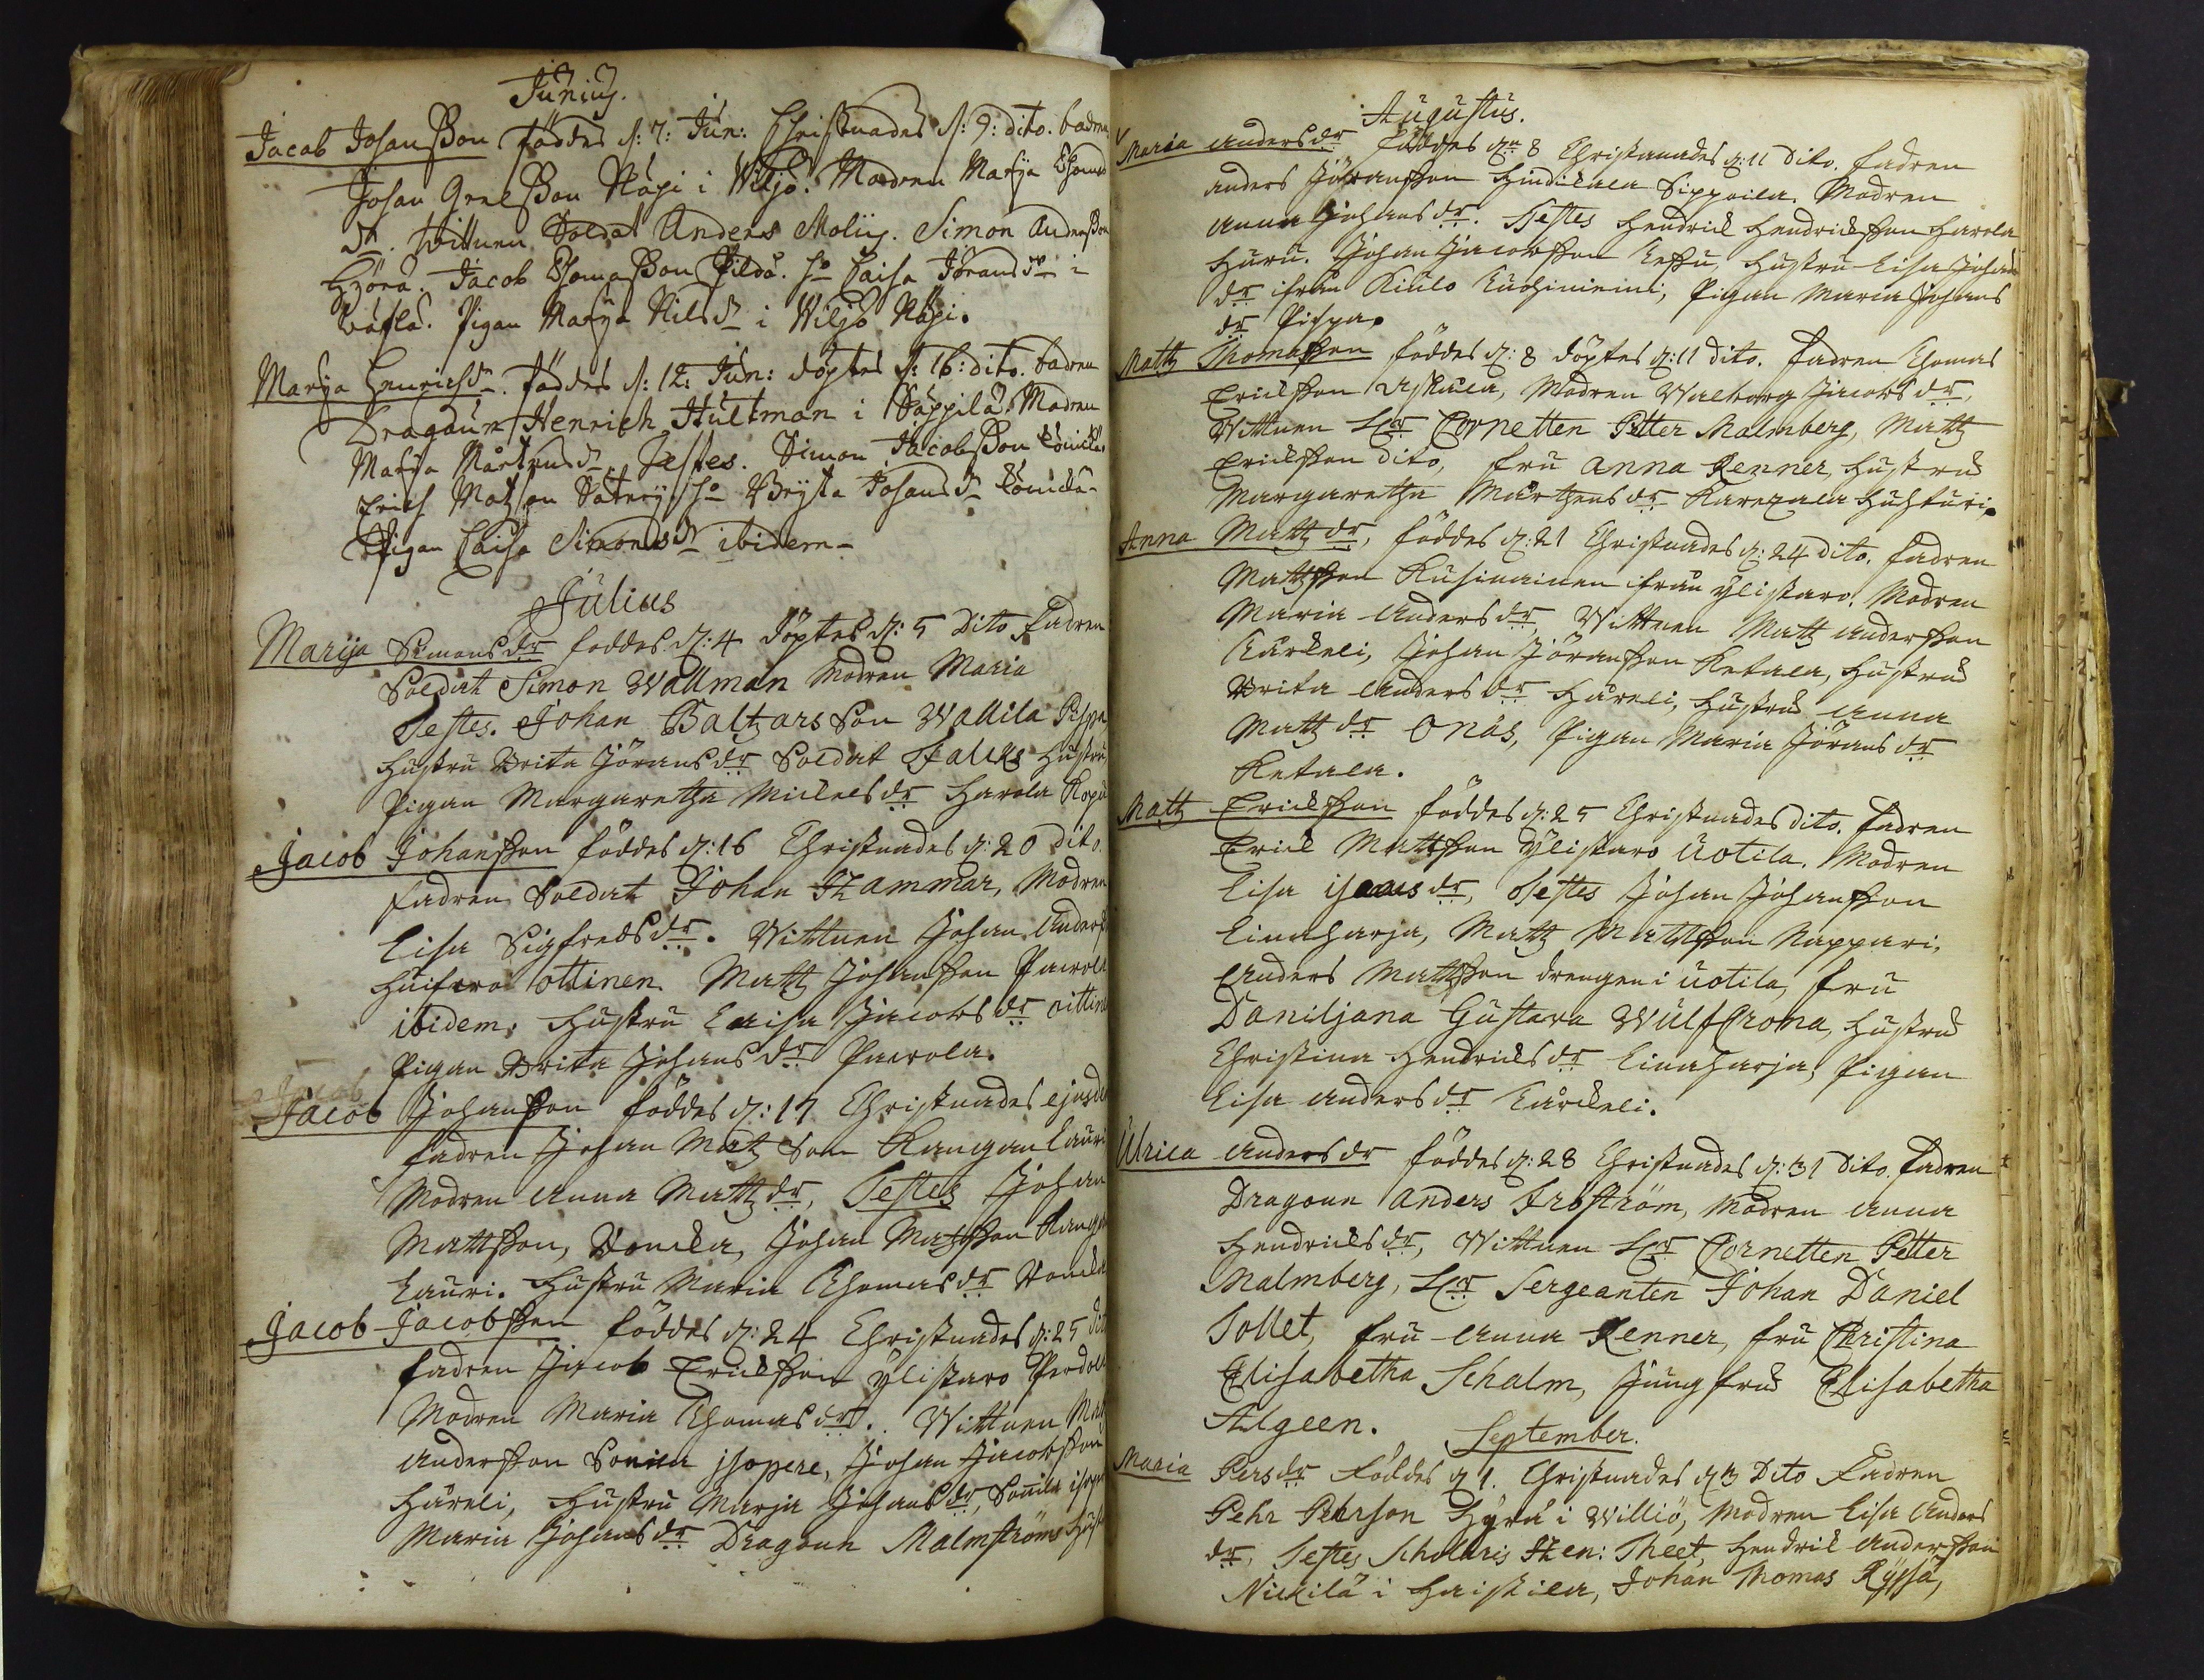 Junius.
Jacob Johansson föddes d: 7: Jun: Christnades d: 9: dito. Fadren
Johan Grelsson Näpi i Wiljo. Modren Marja Thomas
dr. Wittnen Soldat Anders Molin. Simon Andersson
Hyörä. Jacob Thomasson Pildä. Ho Caisa Jörans dr i
Pigan Marja Nils dr i Wiljo Näpi.
Marja Henrichsdr. föddes d: 12: Jun: döptes d: 16: dito. Fadren
Dragoun Henrich Hultman i Säppilä. Modren
Marja Mårtens dr. Testes. Simon Jacobsson
Erich Matsson Ho Brijta Johans dr
Pigan Caisa Simons dr ibidem
Julius
Marija Simons dr föddes d: 4 döptes d: 5 Dito Fadren
Soldat Simon Wallman Modren Maria
Testes. Johan Baltzars Son Wallila Pispa
Hustru Brita Jörans dr Soldat Falcks hustru
Pigan Margaretha Mickels dr Harola
Jacob Johansson föddes d: 16 Christnades d: 20 dito.
Fadren Soldat Johan Hammar, Modren
Lisa Sigfreds dr. Wittnen Johan Anderss
ottinen. Matts Johansson Pavola
ibidem. Hustru Caisa Jacobs dr oittine
Pigan Brita Johans dr Pavola.
Jacob
Jacob Johansson föddes d: 17 Christnades ejusde
Fadren Johan Mats Son Kangan Lauri
Modren Anna Matts dr, Testes Johan
Mattsson, Johan Matsson Kangan
Lauri. Hustru Maria Thomas dr
Jacob Jacobsson föddes d: 24 Christnades d: 25 dit
Fadren Jacob Ericksson Ylistaro Perdola
Modren Maria Thomas dr. Wittnen Matt
Andersson Sonila Isopere, Johan Jacobsson
Häreli, Hustru Marja Johans dr, Sonila isope
Maria Johans dr Dragoun Malmströms hust
Augustus.
Maria Anders dr föddes den 8 Christnades d: 11 Dito. Fadren
Anders Jöransson Hindikala Sippoila. Modren
Anna Johans dr. Testes Hendrick Hendricksson Harola
Huru. Johan Jacobsson Hustru Lisa Johans
dr ifrån Kiulo Pigan Maria Johans
dr Pispa.
Matts Thomasson föddes d: 8 döptes d: 11 dito. Fadren Thomas
Ericksson Modren Walborg Jacobs dr,
Wittnen Hr Cornetten Petter Malmberg, Matts
Ericksson dito, Fru Anna Renner, hustru
Margaretha Mårthens dr Karhtala Huhturi.
Anna Matts dr, föddes d: 21 Christnades d: 24 dito. Fadren
Mattsson Kuhinainen ifrån Ylistaro. Modren
Maria Anders dr Wittnen Matts Andersson
Kärkeli, Johan Jöransson Ketala, Hustru
Brita Anders dr Häreli, Hustru Anna
Matts dr Onas, Pigan Maria Jörans dr
Ketala.
Matts Ericksson föddes d: 25 Christnades dito. Fadren
Erick Mattsson Ylistaro Uotila. Modren
Lisa Isacs dr, Testes Johan Johansson
Linaharja, Matts Mattsson Nappari,
Anders Mattsson drengen i Uotila, Fru
Daniljana Gustava Wulfcrona, Hustru
Christina Hendricks dr Linaharja, Pigan
Lisa Anders dr Kärckeli.
Ulrica Anders dr föddes d: 28 Christnades d: 31 Dito. Fadren
Dragoun Anders Froström, Modren Anna
Hendricks dr, Wittnen Hr Cornetten Petter
Malmberg, Hr Sergeanten Johan Daniel
Tollet, Fru Anna Renner, Fru Christina
Elisabetha Schalm, Jungfru Elisabetha
Algeen.
September.
Maria Pers dr föddes d 1. Christnades d 3 Dito Fadren
Pehr Pehrson Hyrä i Williö, Modren Lisa Anders
dr, Testes Scholaris Hen: Theet, Hendrik Andersson
Nickilä i Haistila, Johan Thomas Ryssä,